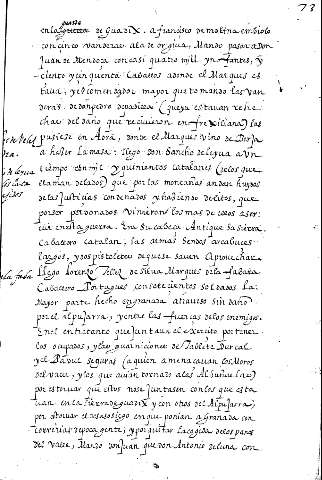 73
puesto
en la frontera de Guadix, a francisco de molina embiolo
con çinco vanderas a la de orgiua, Mando pasar a Don
Juan de Mendoça con casi quatro mill ynfantes, y
ciento y cinquenta Caballos adonde el Marques es
taua, y el comendador mayor que tomando las van
deras de don pedro de padilla (que ya estauan rehe
chas del daño que recibieron en frexiliana) las
pusiese en Adra, donde el Marques vino de Berja
a hazer la masa: llego don Sancho de leyua a un
tiempo con mil y quinientos catalanes (de los que
llaman delados) que por las montañas andan huydos
de las justicias condenados y haziendo delitos, que
por ser perdonados vinieron los mas de ellos a ser
uir en esta guerra. Era su cabeça Antique Sarriera
Cauallero catalan, las armas sendos arcabuces
largos, y dos pistoletes de que se sauen aprouechar
llego Lorenzo Telez de Silua Marques de la fabara
Cauallero Portugues con setecientos soldados la
Mayor parte hecha en granada atraueso sin daño
por el alpuxarra, y entre las fuerças de los enemigos.
En el entretanto que juntaua el exercito por tener
los ocupados, y las guarniciones de Tablate Durcal
y el Padul seguras (a quien amenaçauan los Moros
del valle, y los que auian tornado a las Albuñuelas)
por estoruar que estos no se juntasen con los que esta
uan en la sierra de guadix y con otros del Alpuxarra)
por estoruar el desasosiego en que ponian a Granada con
correrias de poca gente; y por quitar la cogida de los panes
del Valle, Mando don Juan que don Antonio de luna con